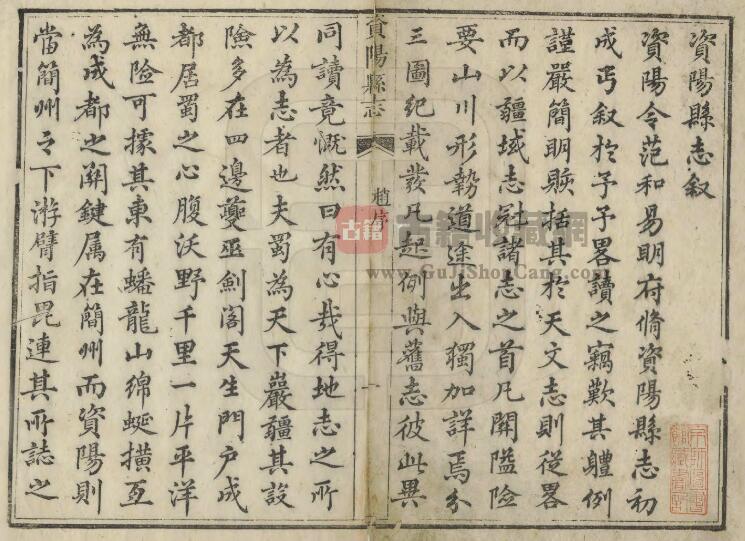 資陽縣志叙
資陽令范和易明府脩資陽縣志初
成丐叙於予予畧讀之竊歎其軆例
謹嚴簡明賅括其於天文志則從畧
而以疆域志冠諸志之首凡關隘險
要山川形勢道途出入獨加詳焉分
三圖紀載發凡起例與舊志彼此異
資陽縣志
趙序
同讀竟慨然曰有心哉得地志之所
以為志者也夫蜀為天下巖疆其設
險多在四邊夔巫劍閣天生門户成
都居蜀之心腹沃野千里一片平洋
無險可據其東有蟠龍山綿蜒横亙
為成都之關鍵属在簡州而資陽則
當簡州之下游臂指毘連其所誌之
古籍
古籍收藏網
www.GuJiShouCang.com